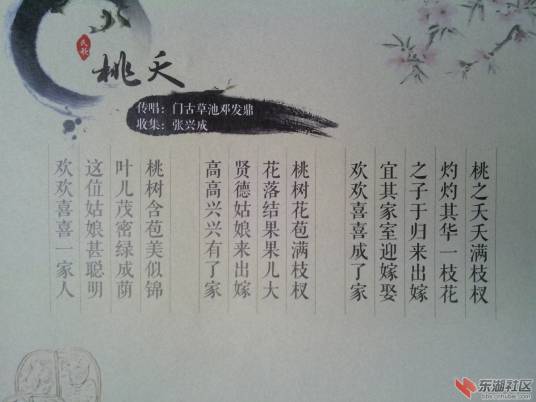 民歌
桃夭
传唱：门古草池邓发鼎
收集：张兴成
桃之夭夭满枝杈
灼灼其华一枝花
之子于归来出嫁
宜其家室迎嫁娶
欢欢喜喜成了家
桃树花苞满枝杈
花落结果果儿大
贤德姑娘来出嫁
高高兴兴有了家
桃树含苞美似锦
叶儿茂密绿成荫
这位姑娘甚聪明
欢欢喜喜一家人
东湖社区
bbs.cnhubei.com